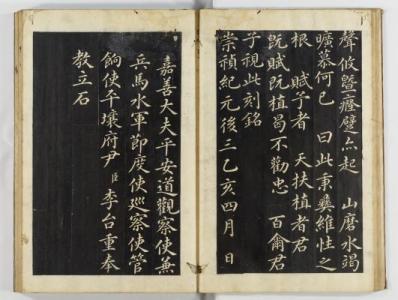 聲攸曁癃躄亦起 山磨水竭
曠慕何已 曰此秉彝維性之
根 賦予者 天扶植者君
旣賦旣植曷不勸忠 百爾君
子視此刻銘
崇禎紀元後三乙亥四月 日
嘉善大夫平安道觀察使兼
兵馬水軍節度使巡察使管
餉使平壤府尹臣李台重奉
敎立石